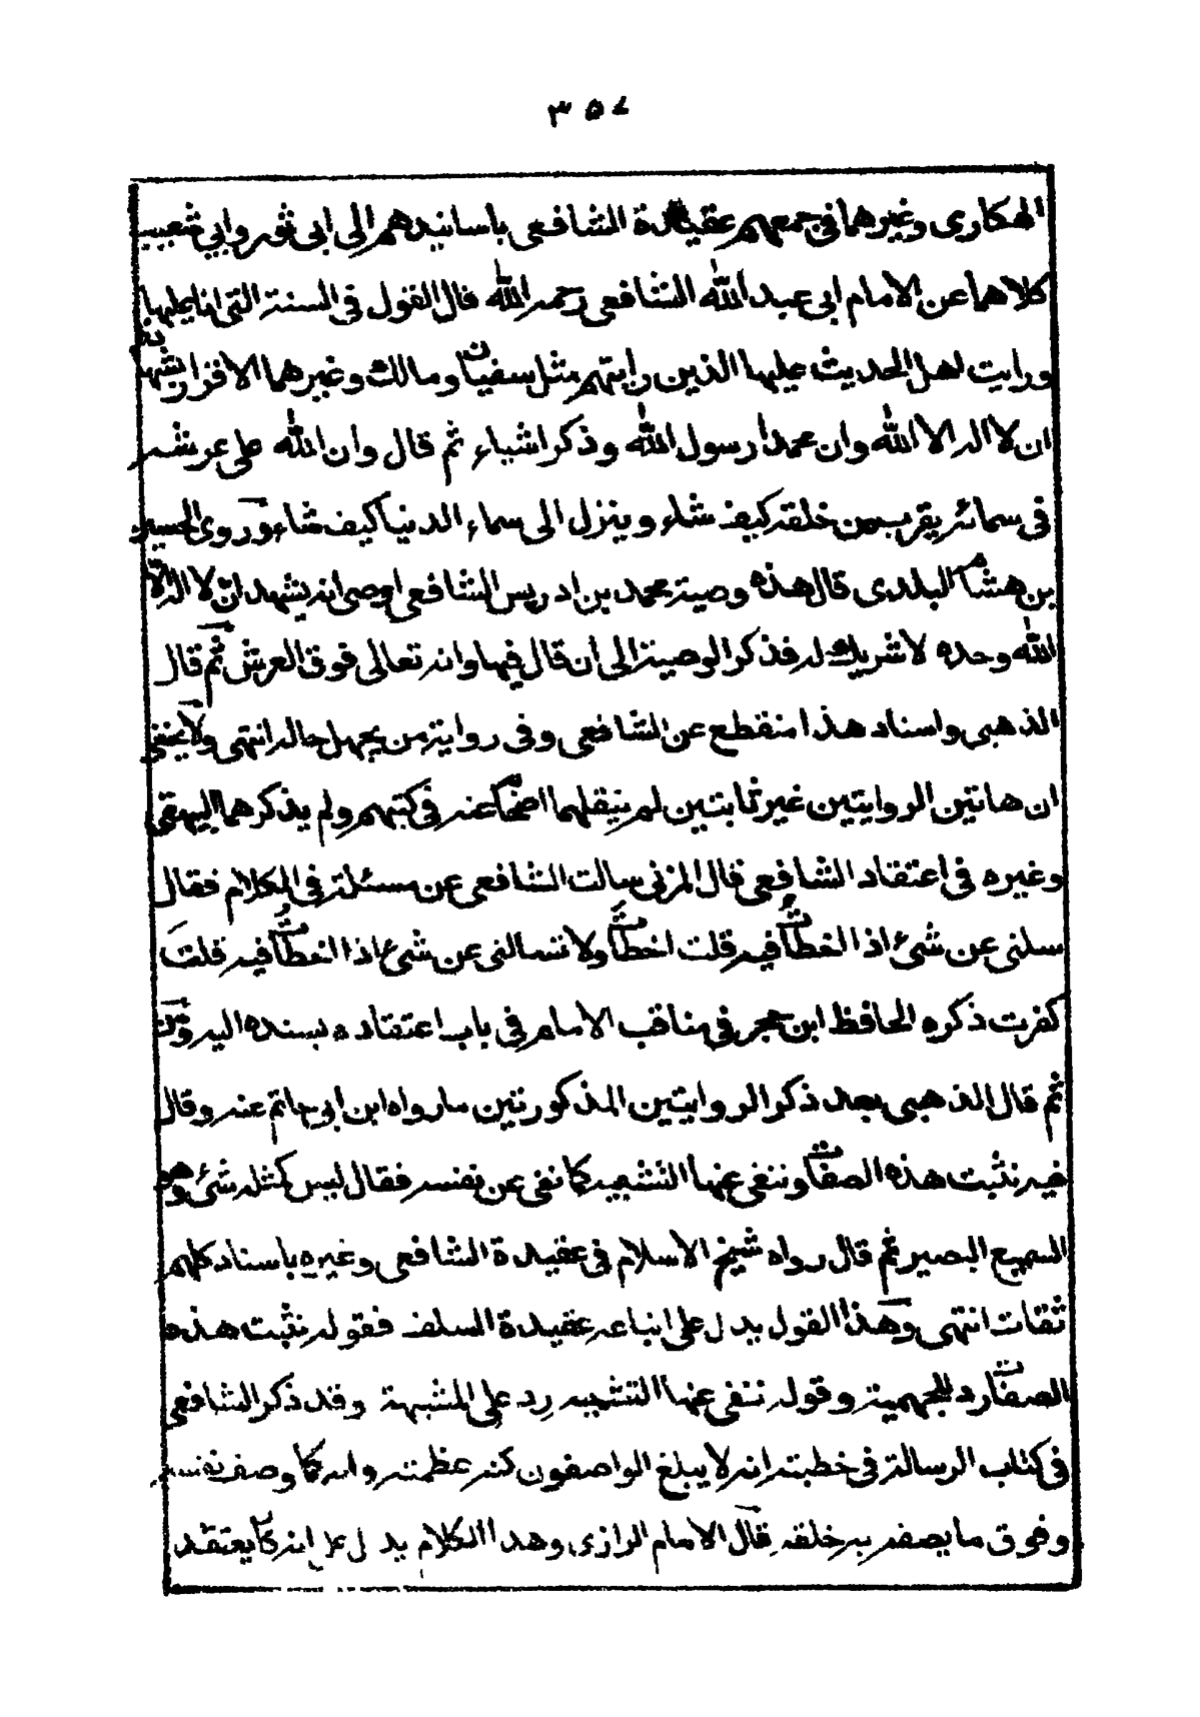 ٣٥٧
الهكارى وغيرهما فى جمعهم عقيدة الشافعى باسانيدهم الى ابى ثور وابي شعيب
كلاهما عن الامام ابى عبد الله الشافعى رحمه الله قال القول فى السنة التى انا عليها
ورايت اهل الحديث عليها الذين رايتهم مثل سفيان ومالك وغيرهما الاقرار بشهادة
ان لا اله الا الله وان محمدا رسول الله وذكر اشياء ثم قال وان الله على عرشه
فى سمائه يقرب من خلقه كيف شاء وينزل الى سماء الدنيا كيف شاء وروى الحسين
بن هشام البلدى قال هذه وصية محمد بن ادريس الشافعى اوصى انه يشهد ان لا اله الا
الله وحده لا شريك له فذكر الوصية الى ان قال فيها وانه تعالى فوق العرش ثم قال
الذهبى واسناد هذا منقطع عن الشافعى وفى رواية من يجهل حاله انتهى ولا يخفى
ان هاتين الروايتين غير ثابتين لم ينقلهما اصحابنا عنه فى كتبهم ولم يذكرهما البيهقى
وغيره فى اعتقاد الشافعى قال المزنى سالت الشافعى عن مسئلة فى الكلام فقال
سلنى عن شئ اذا اخطأت فيه قلت اخطأت ولا تسالنى عن شئ اذا اخطأت فيه قلت
كفرت ذكره الحافظ ابن حجر فى مناقب الامام فى باب اعتقاده بسنده اليه
ثم قال الذهبى بعد ذكر الروايتين المذكورتين مارواه ابن ابى حاتم عنه وقال
فيه نثبت هذه الصفات وننفى عنها التشبيه كما نفى عن نفسه فقال ليس كمثله شئ وهو
السميع البصير ثم قال رواه شيخ الاسلام فى عقيدة الشافعى وغيره باسناد كلهم
ثقات انتهى وهذا القول يدل على اتباعه عقيدة السلف فقوله نثبت هذه
الصفات رد للجهمية وقوله ننفى عنها التشبيه رد على المشبهة وقد ذكر الشافعى
فى كتاب الرسالة فى خطبته انه لا يبلغ الواصفون كنه عظمته وانه كما وصف نفسه
وفوق ما يصفه به خلقه قال الامام الرازى وهذا الكلام يدل على انه كان يعتقد